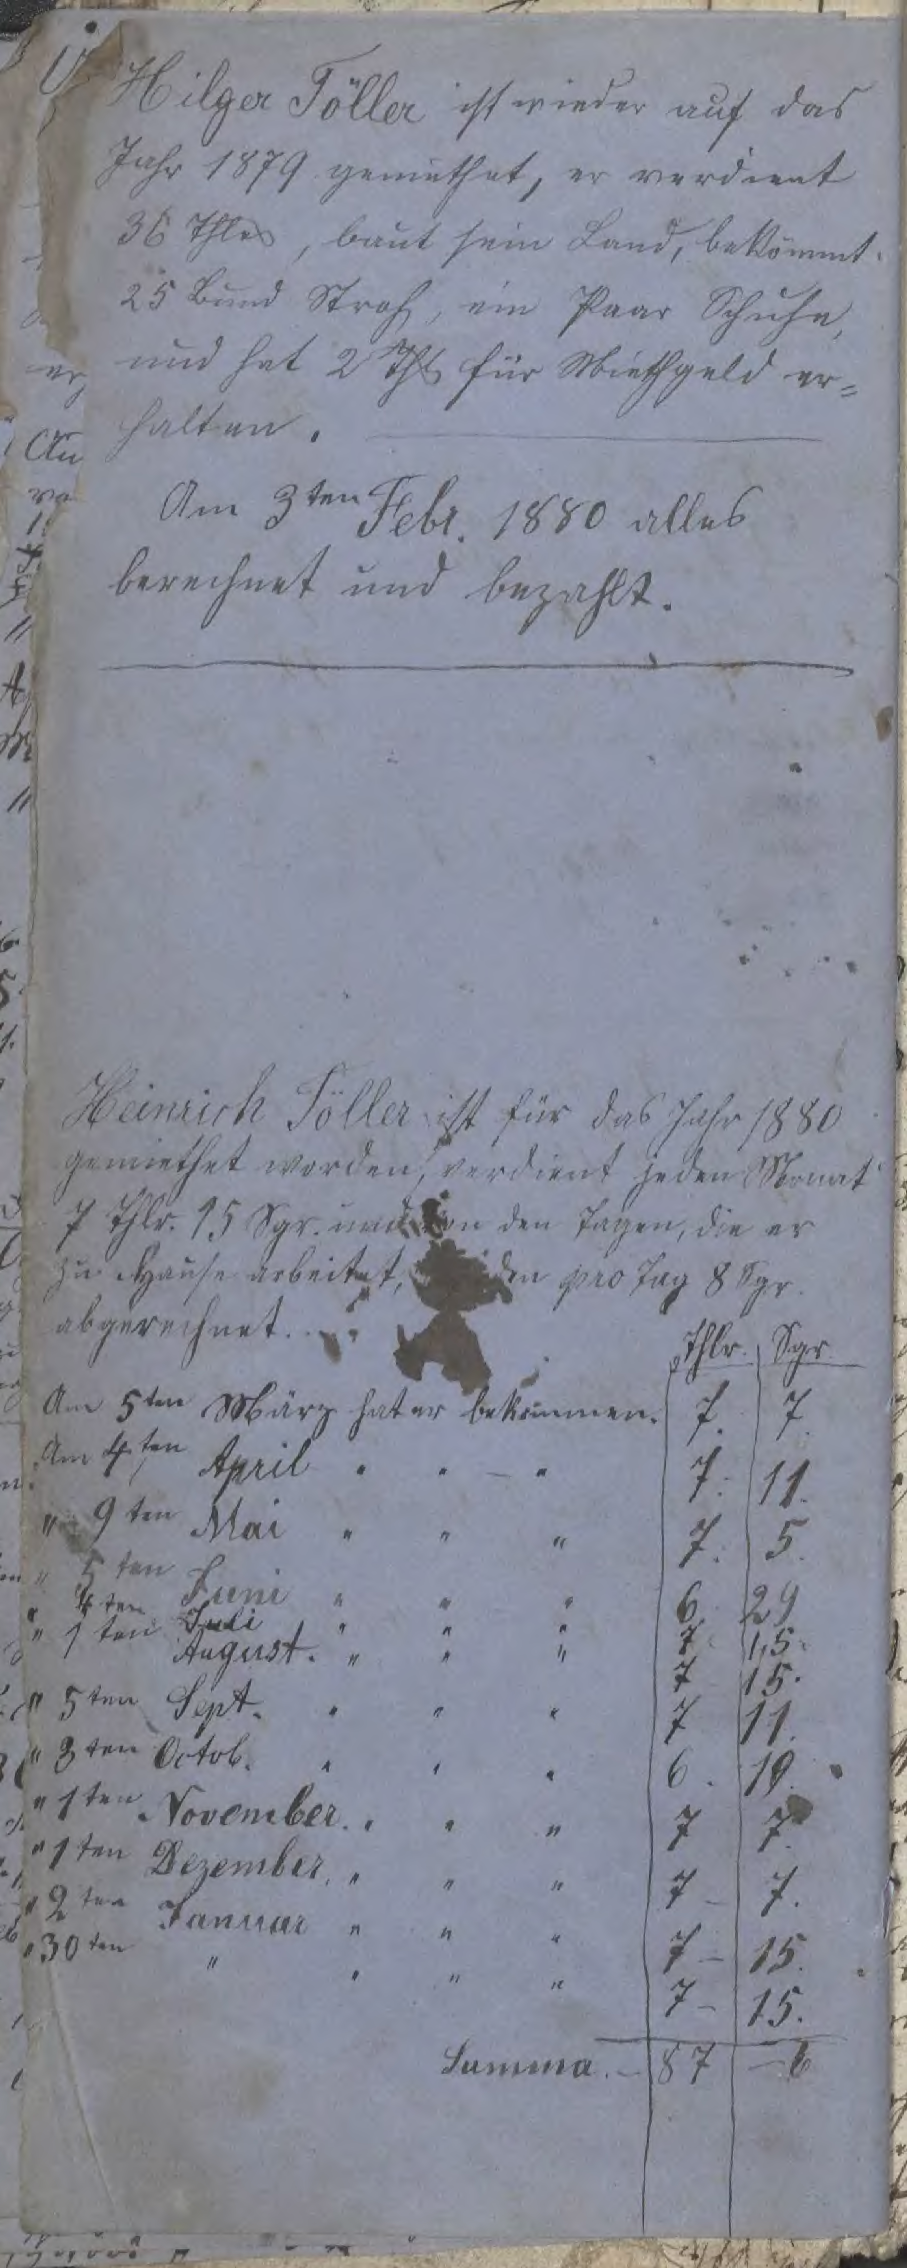 Hilger Töller ist wieder auf das
Jahr 1879 gemiethet, er verdient
36 Thlr, baut sein Land, bekömmt
25 Bund Stroh, ein Paar Schuhe,
und hat 2 Thlr für Miethgeld er=
halten.
Am 3ten Febr. 1880 alles
berechnet und bezahlt.
Heinrich Töller ist für das Jahr 1880
gemiethet worden, verdient jeden Monat
7 Thlr. 15 Sgr. und von den Tagen, die er
zu Hause arbeitet, den pro Tag 8 Sgr.
abgerechnet.
Thlr. Sgr.
Am 5ten März hat er bekommen. 7. 7.
Am 4ten April " " - " 7. 11.
" 9ten Mai " " " 7. 5.
" 5ten Juni " " " 6 29
" 4ten Juli " " " 7. 15.
" 1ten August. " " " 7 15.
" 5ten Sept. " " " 7 11.
" 3ten Octob. " " " 6. 19.
" 1ten November. " " " 7 7.
" 1ten Dezember. " " " 7 - 7.
" 2ten Januar " " " 7 - 15.
" 30ten " " " " 7 - 15.
Summa. - 87 - 6